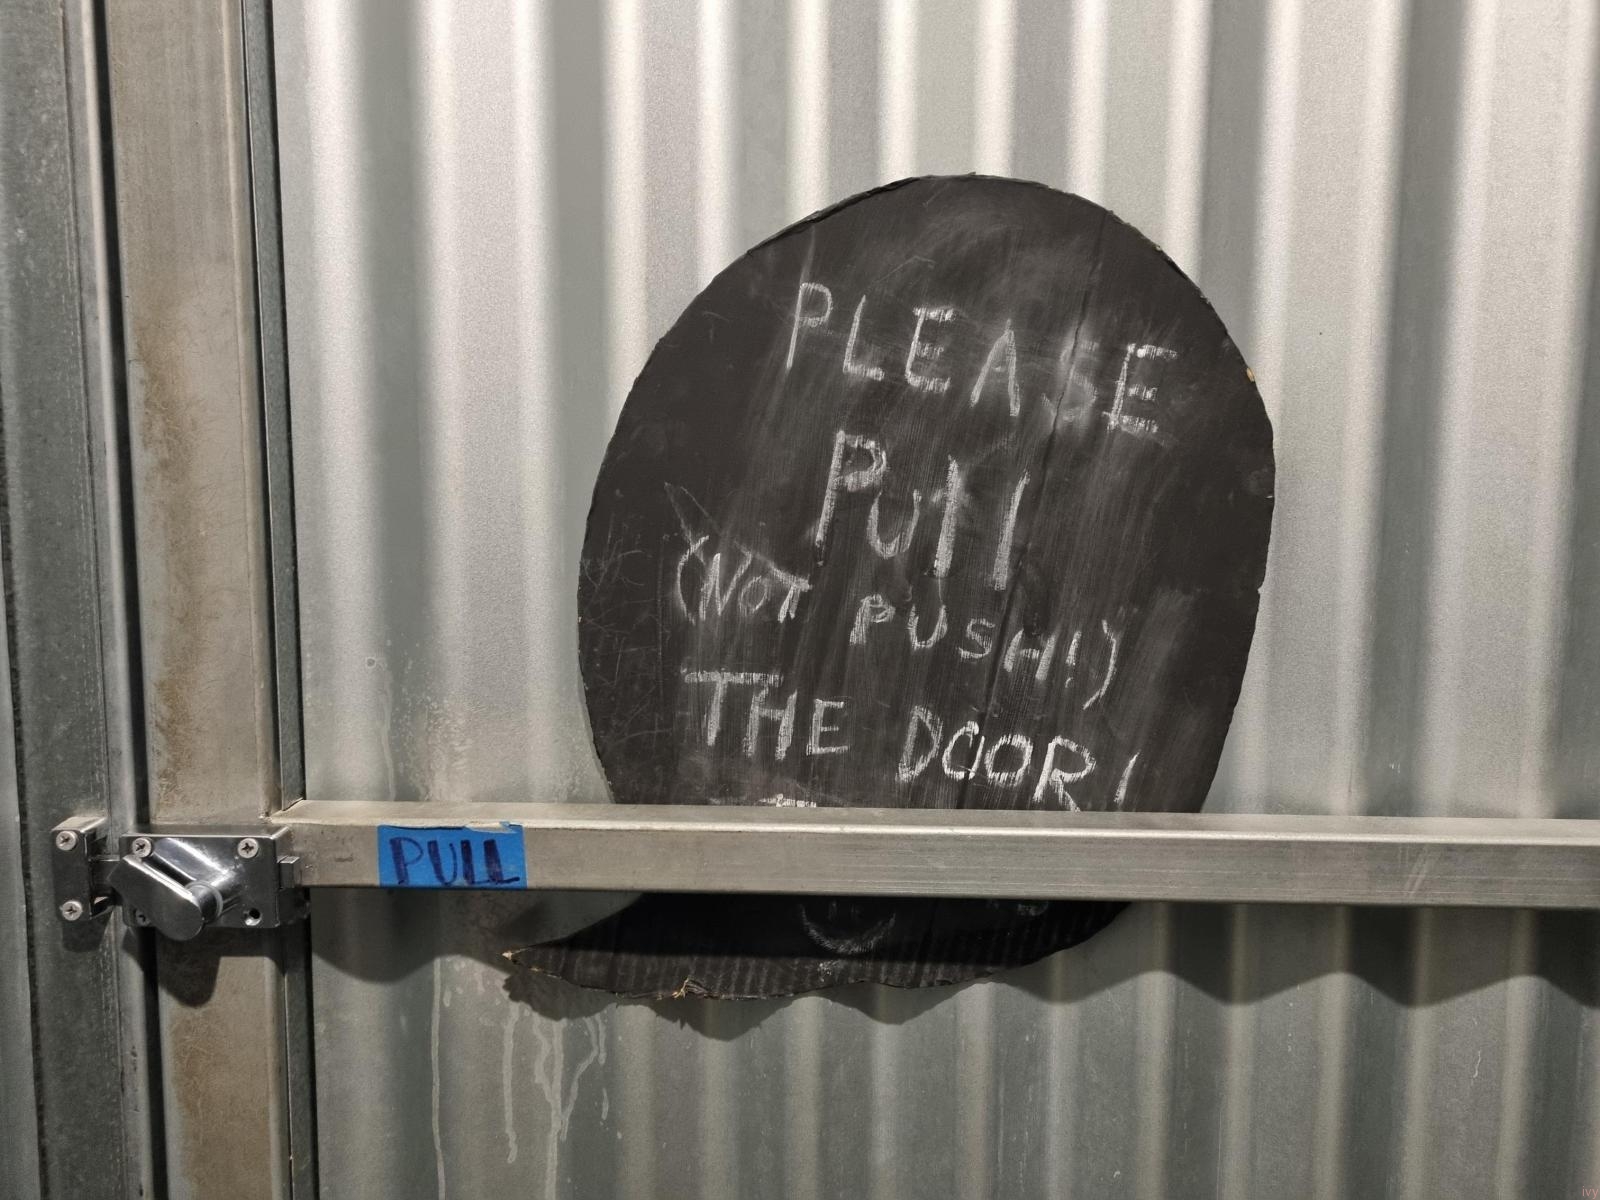 PLEASE
PUll
(NOT PUSH!)
THE DOOR!
PULL
ivy